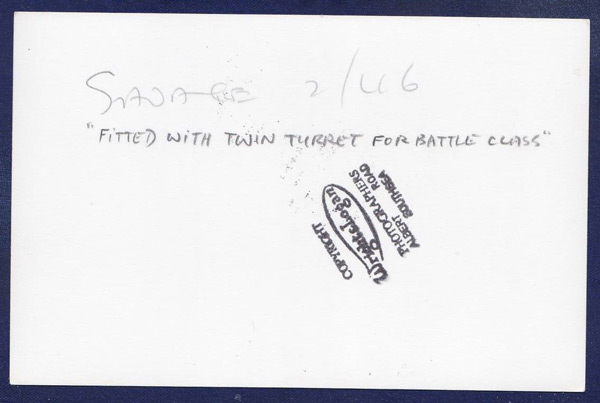 SAVAGE 2/46
"FITTED WITH TWIN TURRET FOR BATTLE CLASS"
COPYRIGHT
Wright & Logan
PHOTOGRAPHERS
ALBERT ROAD
SOUTHSEA